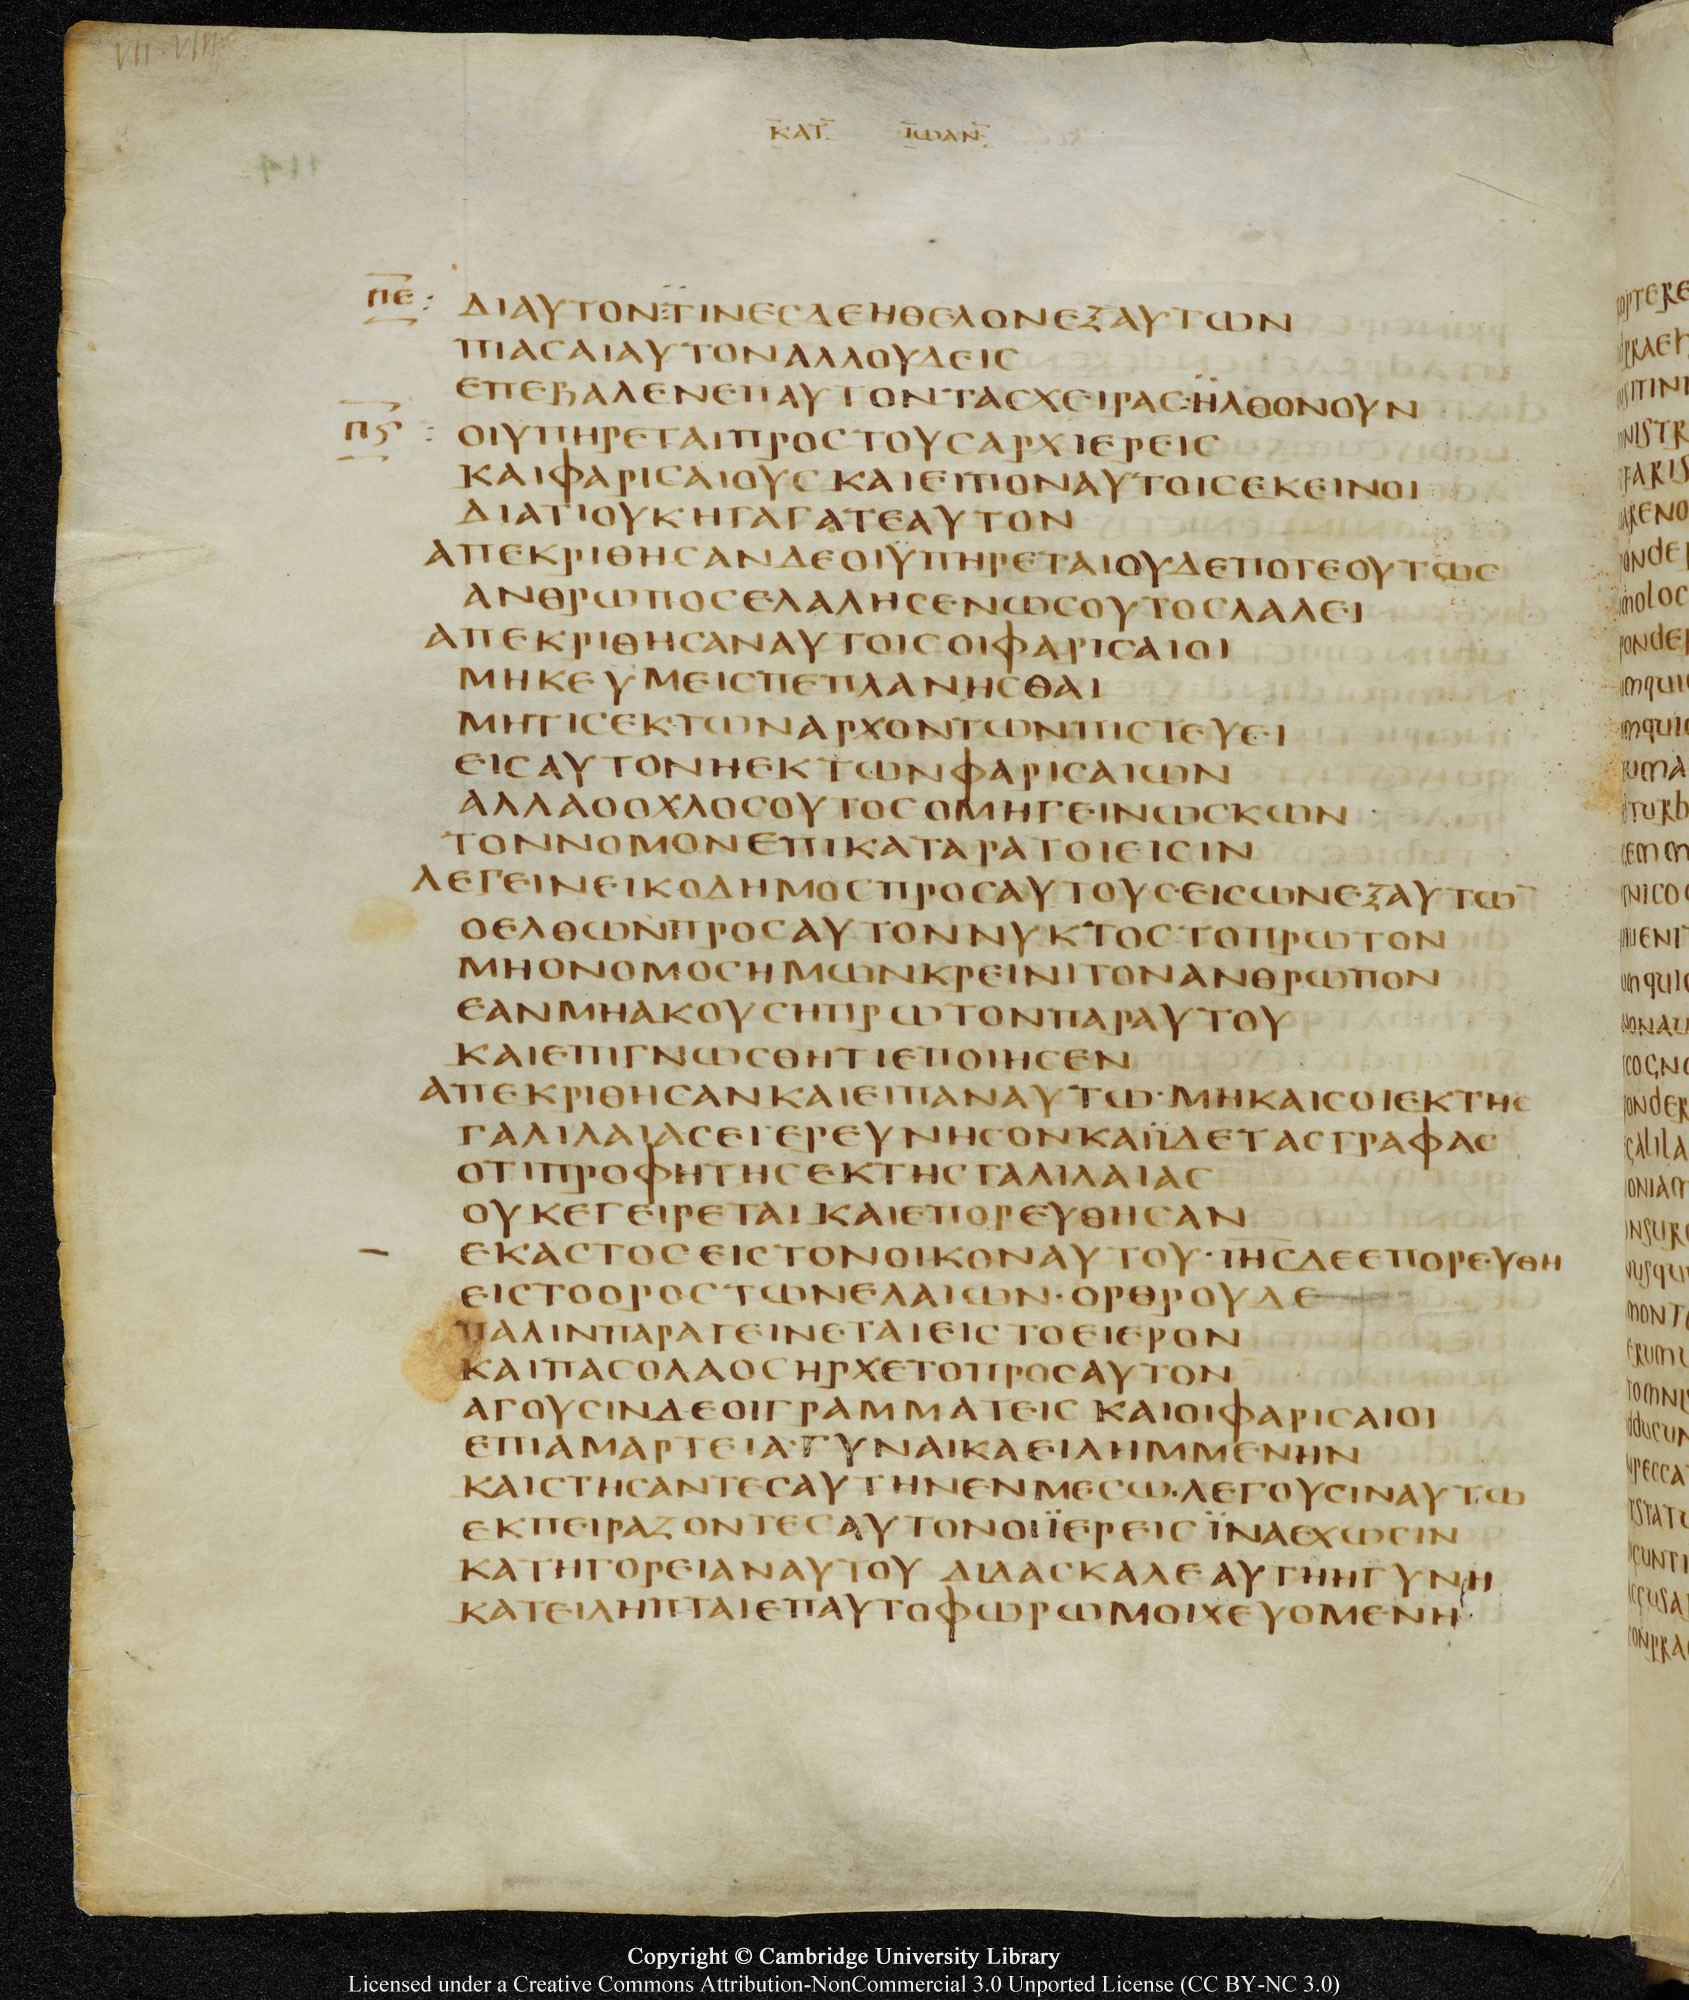 VII · VIII
ΚΑΤ ΙΩΑΝ
114
Π̅Ε̅ : ΔΙΑΥΤΟΝ:ΤΙΝΕϹΔΕΗΘΕΛΟΝΕΞΑΥΤΩΝ
ΠΙΑϹΑΙΑΥΤΟΝΑΛΛΟΥΔΕΙϹ
ΕΠΕΒΑΛΕΝΕΠΑΥΤΟΝΤΑϹΧΕΙΡΑϹ:ΗΛΘΟΝΟΥΝ
Π̅Ϛ̅ : ΟΙΥΠΗΡΕΤΑΙΠΡΟϹΤΟΥϹΑΡΧΙΕΡΕΙϹ
ΚΑΙΦΑΡΙϹΑΙΟΥϹΚΑΙΕΙΠΟΝΑΥΤΟΙϹΕΚΕΙΝΟΙ
ΔΙΑΤΙΟΥΚΗΓΑΓΑΤΕΑΥΤΟΝ
ΑΠΕΚΡΙΘΗϹΑΝΔΕΟΙΫΠΗΡΕΤΑΙΟΥΔΕΠΟΤΕΟΥΤΩϹ
ΑΝΘΡΩΠΟϹΕΛΑΛΗϹΕΝΩϹΟΥΤΟϹΛΑΛΕΙ
ΑΠΕΚΡΙΘΗϹΑΝΑΥΤΟΙϹΟΙΦΑΡΙϹΑΙΟΙ
ΜΗΚΕΥΜΕΙϹΠΕΠΛΑΝΗϹΘΑΙ
ΜΗΤΙϹΕΚΤΩΝΑΡΧΟΝΤΩΝΠΙϹΤΕΥΕΙ
ΕΙϹΑΥΤΟΝΗΕΚΤΩΝΦΑΡΙϹΑΙΩΝ
ΑΛΛΑΟΟΧΛΟϹΟΥΤΟϹΟΜΗΓΕΙΝΩϹΚΩΝ
ΤΟΝΝΟΜΟΝΕΠΙΚΑΤΑΡΑΤΟΙΕΙϹΙΝ
ΛΕΓΕΙΝΕΙΚΟΔΗΜΟϹΠΡΟϹΑΥΤΟΥϹ·ΕΙϹΩΝΕΞΑΥΤΩ̅
ΟΕΛΘΩΝΠΡΟϹΑΥΤΟΝΝΥΚΤΟϹΤΟΠΡΩΤΟΝ
ΜΗΟΝΟΜΟϹΗΜΩΝΚΡΕΙΝΙΤΟΝΑΝΘΡΩΠΟΝ
ΕΑΝΜΗΑΚΟΥϹΗΠΡΩΤΟΝΠΑΡΑΥΤΟΥ
ΚΑΙΕΠΙΓΝΩϹΘΗΤΙΕΠΟΙΗϹΕΝ
ΑΠΕΚΡΙΘΗϹΑΝΚΑΙΕΙΠΑΝΑΥΤΩ·ΜΗΚΑΙϹΟΙΕΚΤΗϹ
ΓΑΛΙΛΑΙΑϹΕΙΕΡΕΥΝΗϹΟΝΚΑΪΙΔΕΤΑϹΓΡΑΦΑϹ
ΟΤΙΠΡΟΦΗΤΗϹΕΚΤΗϹΓΑΛΙΛΑΙΑϹ
ΟΥΚΕΓΕΙΡΕΤΑΙΚΑΙΕΠΟΡΕΥΘΗϹΑΝ
– ΕΚΑϹΤΟϹΕΙϹΤΟΝΟΙΚΟΝΑΥΤΟΥ·Ι̅Η̅Ϲ̅ΔΕΕΠΟΡΕΥΘΗ
ΕΙϹΤΟΟΡΟϹΤΩΝΕΛΑΙΩΝ·ΟΡΘΡΟΥΔΕ
ΠΑΛΙΝΠΑΡΑΓΕΙΝΕΤΑΙΕΙϹΤΟΕΙΕΡΟΝ
ΚΑΙΠΑϹΟΛΑΟϹΗΡΧΕΤΟΠΡΟϹΑΥΤΟΝ
ΑΓΟΥϹΙΝΔΕΟΙΓΡΑΜΜΑΤΕΙϹ ΚΑΙΟΙΦΑΡΙϹΑΙΟΙ
ΕΠΙΑΜΑΡΤΕΙΑ·ΓΥΝΑΙΚΑΕΙΛΗΜΜΕΝΗΝ
ΚΑΙϹΤΗϹΑΝΤΕϹΑΥΤΗΝΕΝΜΕϹΩ·ΛΕΓΟΥϹΙΝΑΥΤΩ
ΕΚΠΕΙΡΑΖΟΝΤΕϹΑΥΤΟΝΟΙΪΕΡΕΙϹΪΝΑΕΧΩϹΙΝ
ΚΑΤΗΓΟΡΕΙΑΝΑΥΤΟΥ ΔΙΔΑϹΚΑΛΕΑΥΤΗΗΓΥΝΗ
ΚΑΤΕΙΛΗΠΤΑΙΕΠΑΥΤΟΦΩΡΩΜΟΙΧΕΥΟΜΕΝΗ
Copyright © Cambridge University Library
Licensed under a Creative Commons Attribution-NonCommercial 3.0 Unported License (CC BY-NC 3.0)